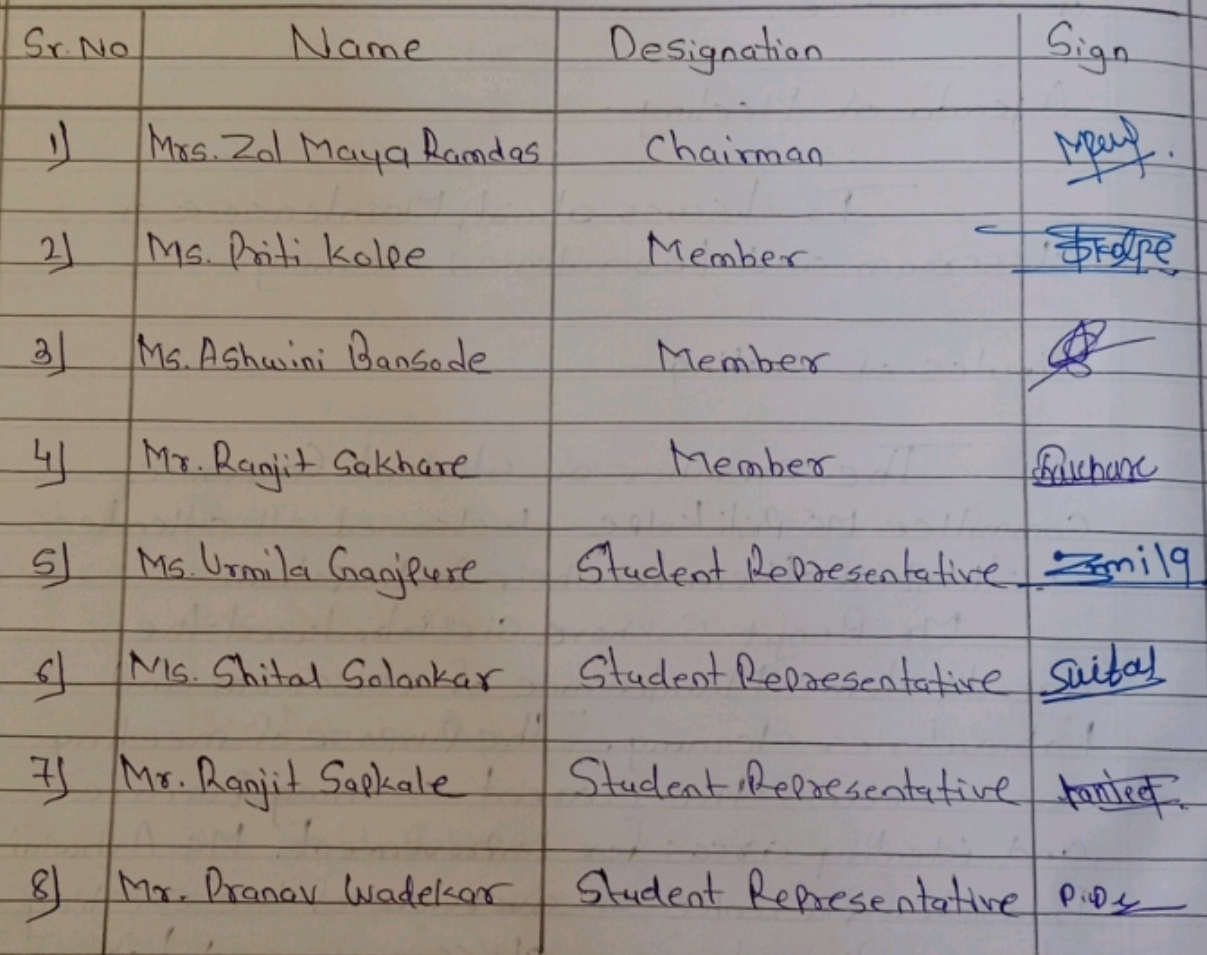 Sr. No Name Designation Sign
1) Mrs. Zol Maya Ramdas Chairman
2) Ms. Priti Kolpe Member Skolpe
3) Ms. Ashwini Bansode Member
4) Mr. Ranjit Sakhare Member
5) Ms. Urmila Ganjpure Student Representative
6) Ms. Shital Solankar Student Representative
7) Mr. Ranjit Sapkale Student Representative
8) Mr. Pranav Wadekar Student Representative